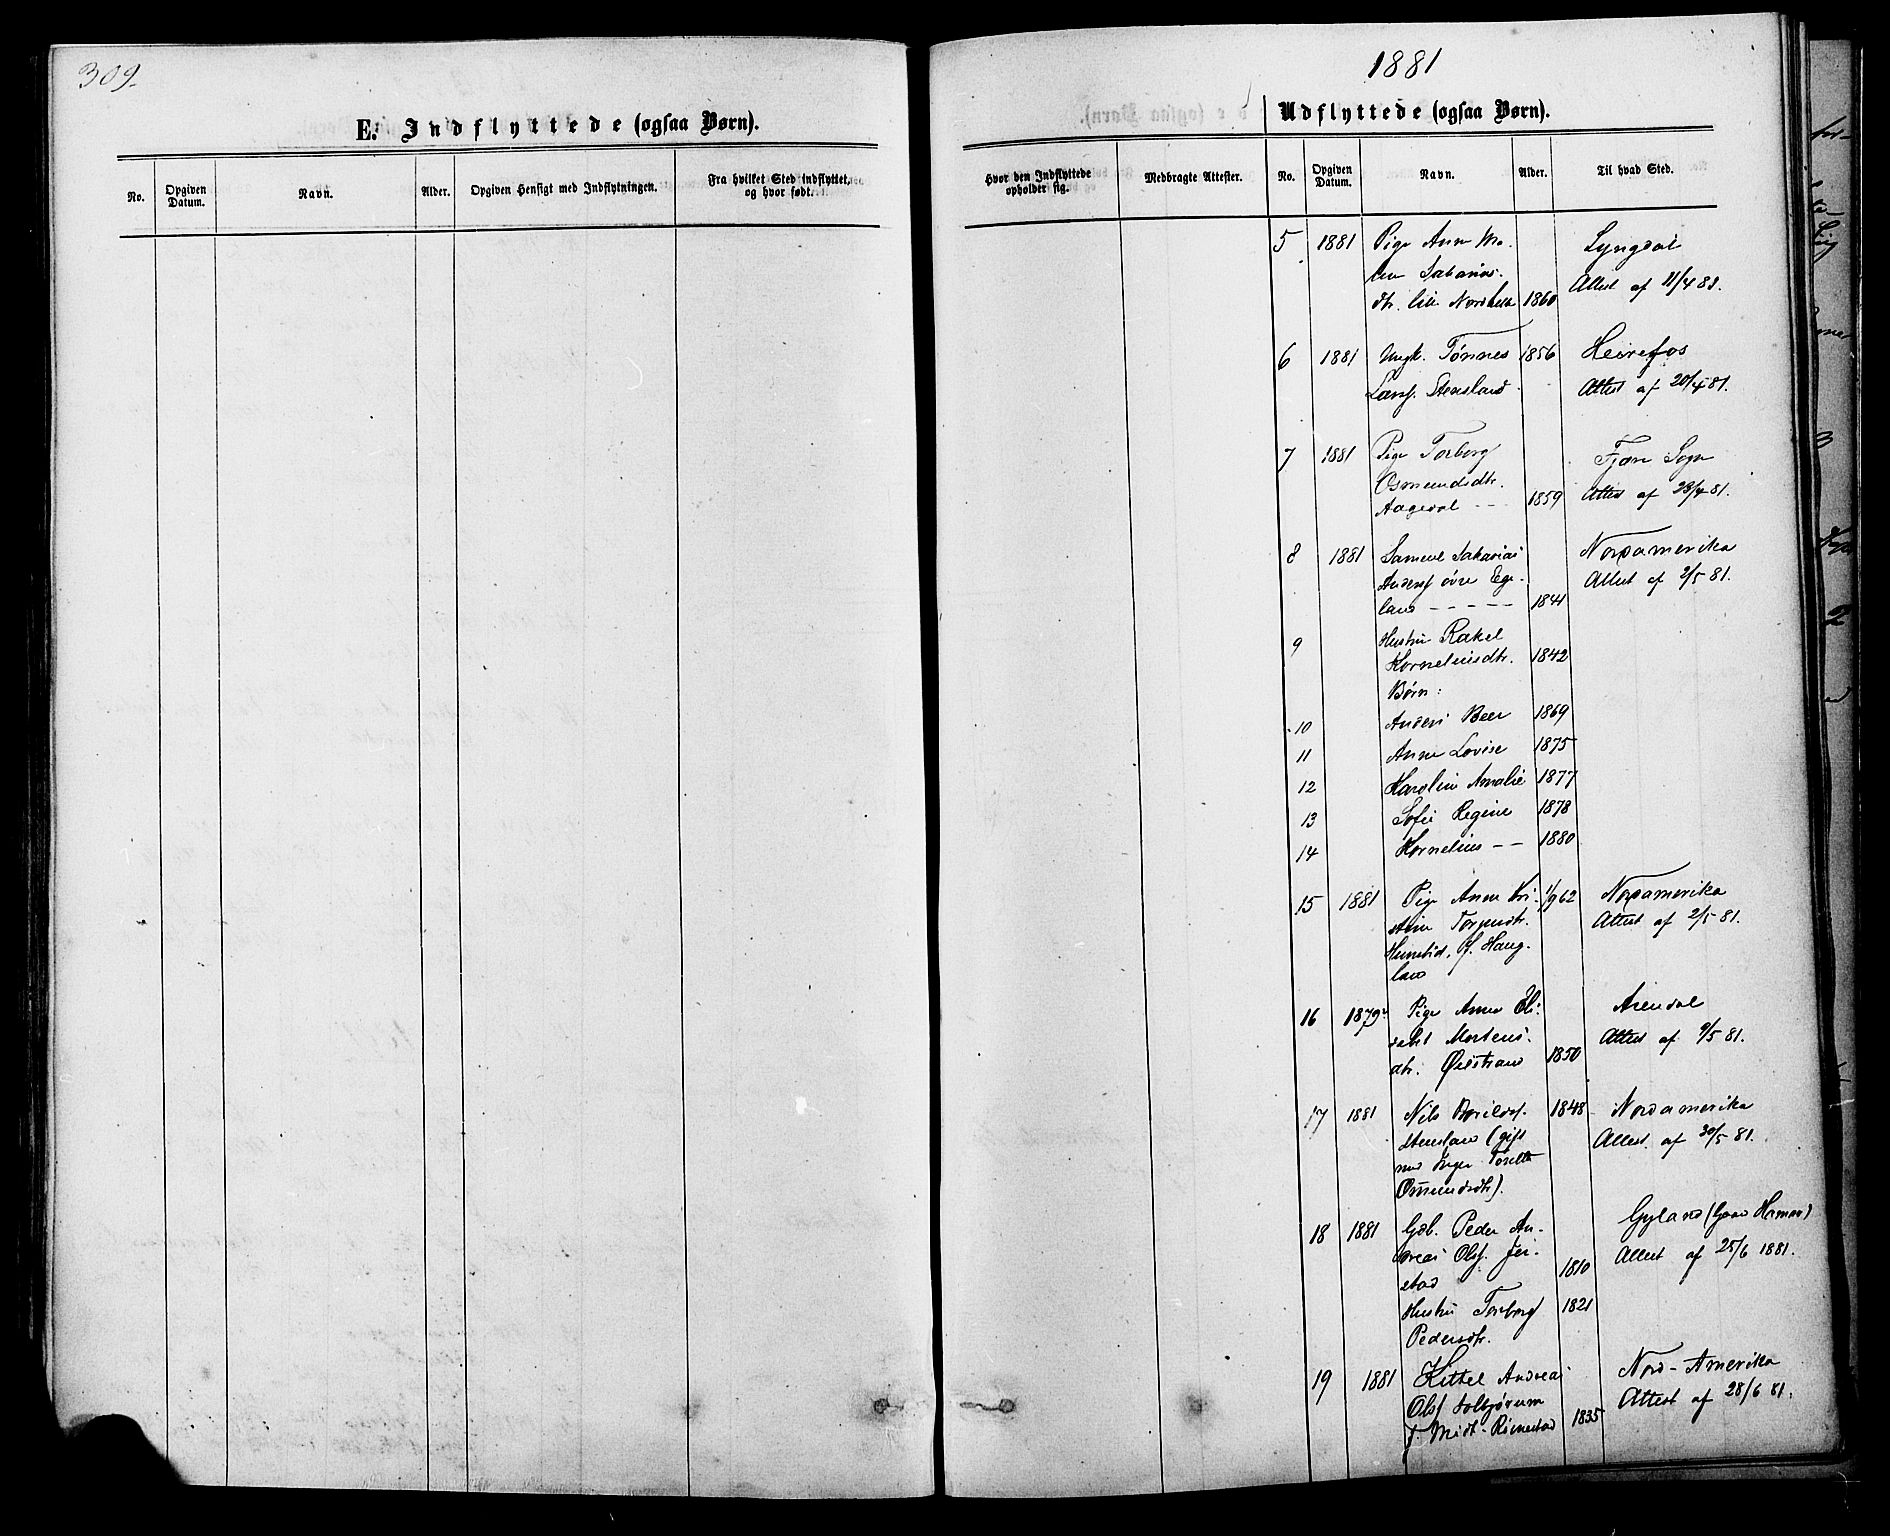 309.
1881
E. Indflyttede (ogsaa Børn).
No.
Opgiven Datum.
Navn.
Alder.
Opgiven Hensigt med Indflytningen.
Fra hvilket Sted indflyttet, og hvor født.
Udflyttede (ogsaa Børn).
Hvor den Indflyttede opholder sig.
Medbragte Attester.
No.
Opgiven Datum.
Navn.
Alder.
Til hvad Sted.
5 1881 Pige Anne Ma- Lyngdal
Attest af 11/4 81.
dtr. lille 1860
6 1881 Ungk. Tønnes 1856 Heirefos
Larss. Steensland Attest af 20/4 81.
7 1881 Pige Torborg Fjære Sogn
Osmundsdtr.
Aagedal - - 1859 Attest af 23/4 81.
8 1881 Samuel Sakarias Nordamerika
Anders. øvre Ege- Attest af 2/5 81.
land - - - - - 1841
9 Hustru Rakel
Korneliusdtr. 1842
Børn:
10 Anders Beer 1869
11 Anne Lovise 1875
12 Karoline Amalie 1877
13 Sofie Regine 1878
14 Kornelius - - 1880
15 1881 Pige Anne Kri- 1/9 62 Nordamerika
stine Attest af 2/5 81.
Haug-
land
16 1879 Pige Anne Eli- Arendal
sabet Mortens- Attest af 9/5 81.
dtr. Øvlstrand 1850
17 1881 Nils 1848 Nordamerika
Stensland (gift Attest af 30/5 81.
med Inger Torette
Osmundsdtr).
18 1881 Gdb. Peder An- Gyland (Gaard Hamar)
dreas Ols. Jer- Attest af 25/6 1881.
stad 1810
Hustru Torborg 1821
Pedersdtr.
19 1881 Kittel Andreas Nord-Amerika
Ols. Attest af 28/6 81.
f. Midt-Rimestad 1835